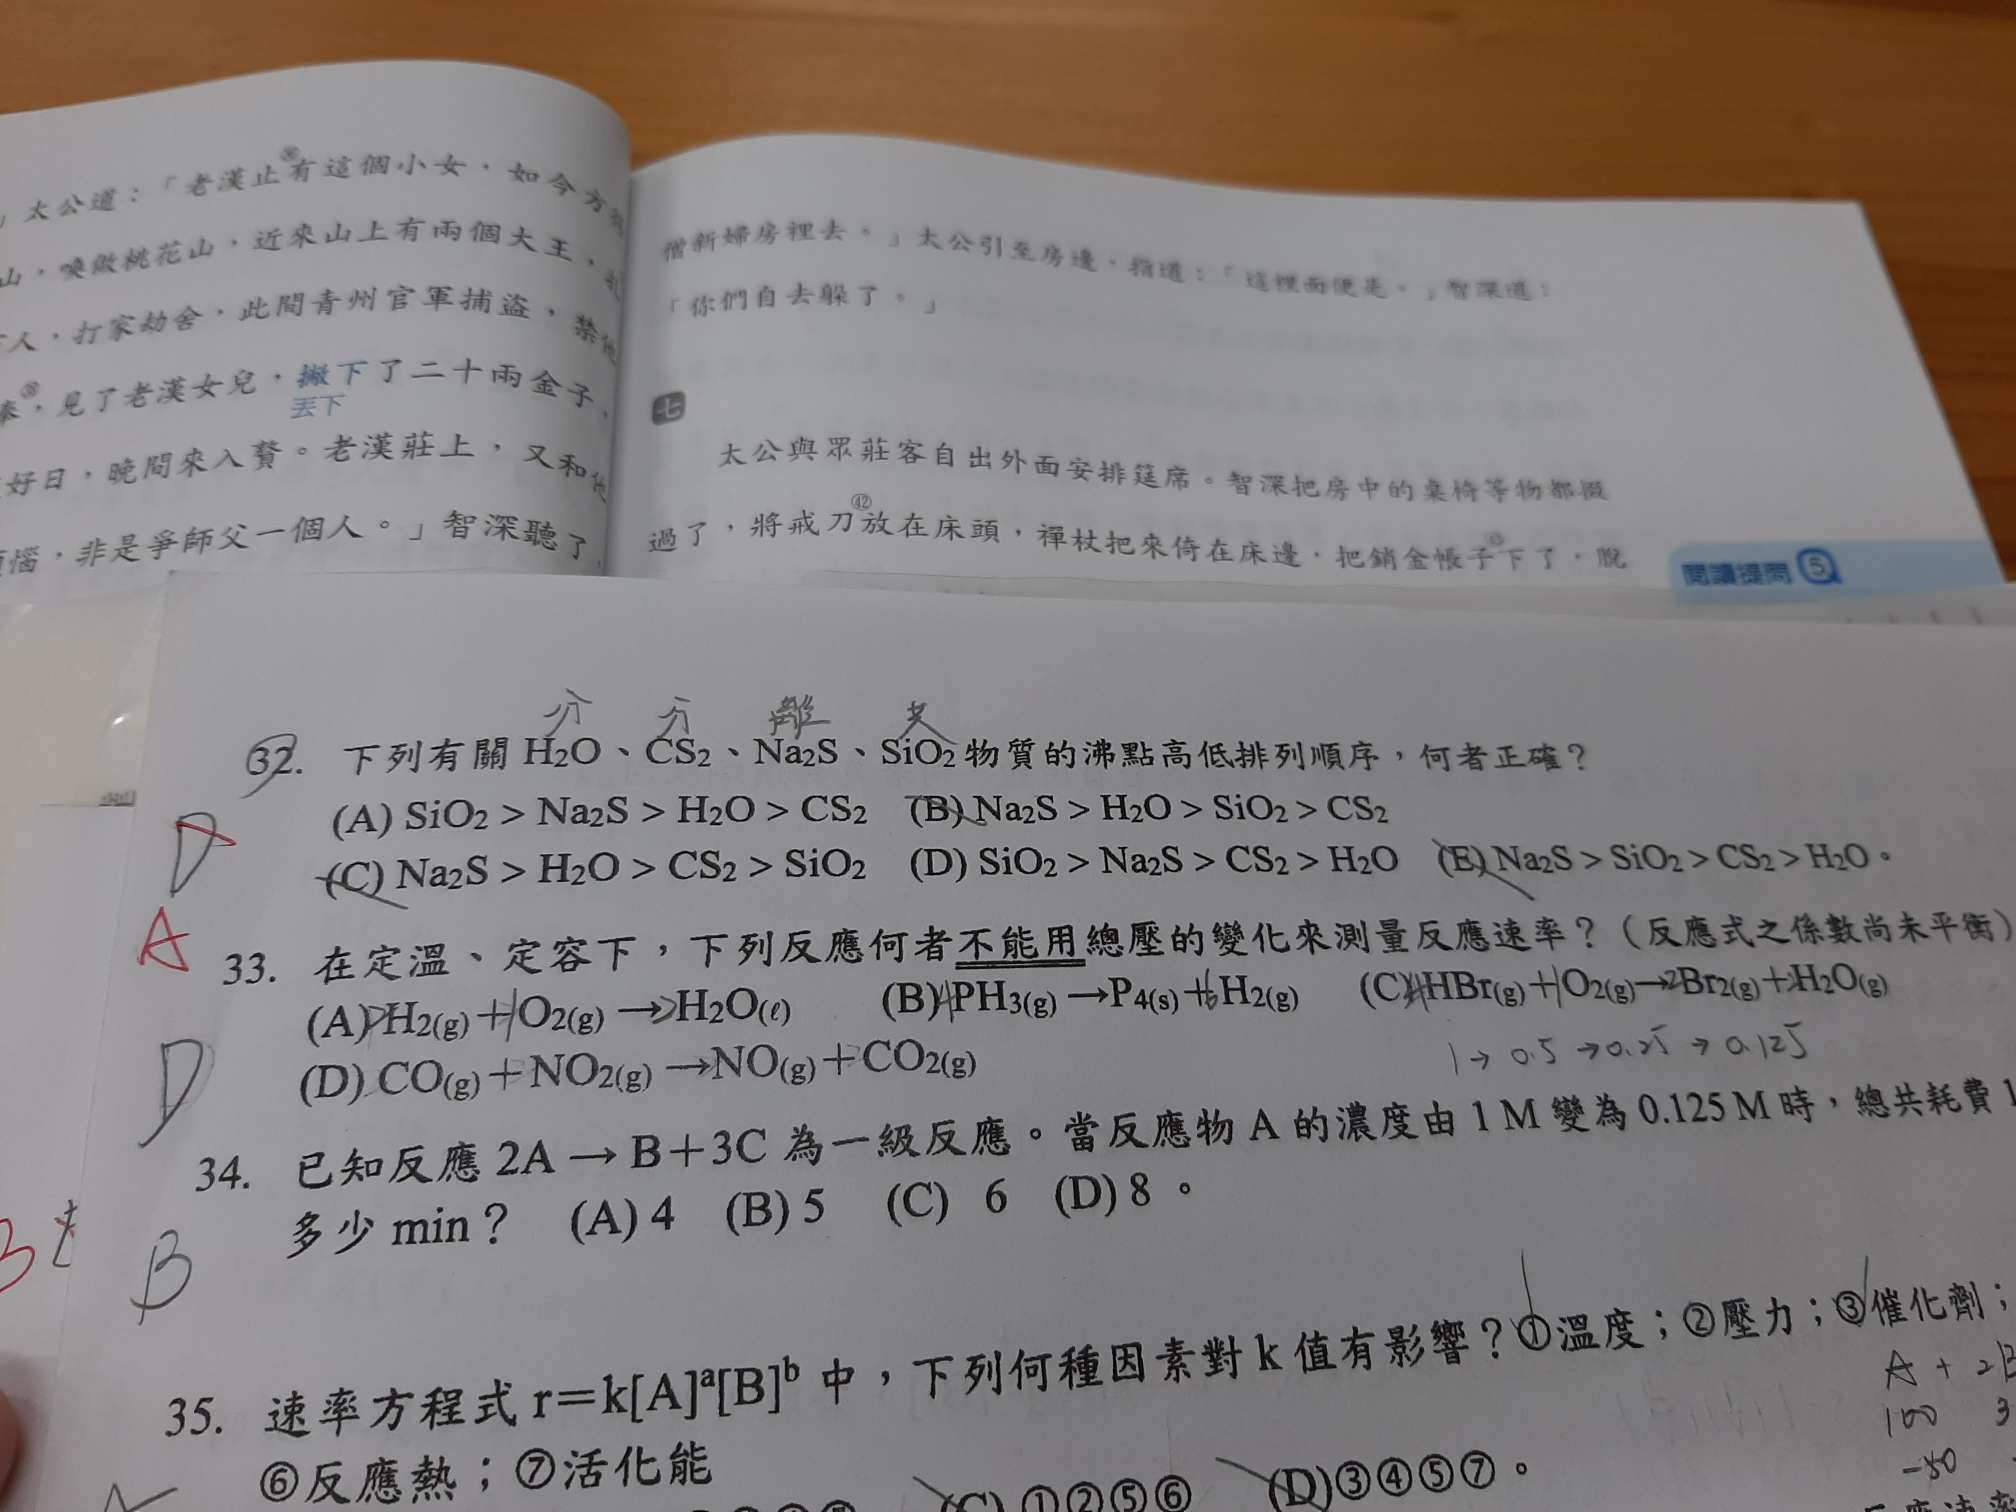 」太公道：「老漢止有這個小女，如今方
山，喚做桃花山，近來山上有兩個大王，
人，打家劫舍，此間青州官軍捕盜，禁他
，見了老漢女兒，撇下了二十兩金子，
丟下
好日，晚間來入贅。老漢莊上，又和他
惱，非是爭師父一個人。」智深聽了，
僧新婦房裡去。」太公引至房邊，指道：「這裡面便是。」智深道：
「你們自去躲了。」
七
太公與眾莊客自出外面安排筵席。智深把房中的桌椅等物都掇
過了，將戒刀㊷放在床頭，禪杖把來倚在床邊，把銷金帳子下了，脫
閱讀提問 5
分 分 離 共
32. 下列有關 H₂O、CS₂、Na₂S、SiO₂ 物質的沸點高低排列順序，何者正確？
(A) SiO₂ > Na₂S > H₂O > CS₂ (B) Na₂S > H₂O > SiO₂ > CS₂
D
(C) Na₂S > H₂O > CS₂ > SiO₂ (D) SiO₂ > Na₂S > CS₂ > H₂O (E) Na₂S > SiO₂ > CS₂ > H₂O。
A
33. 在定溫、定容下，下列反應何者不能用總壓的變化來測量反應速率？（反應式之係數尚未平衡）
(A) 2H₂(g)+1O₂(g)→2H₂O(ℓ) (B) 4PH₃(g)→P₄(s)+6H₂(g) (C) 4HBr(g)+1O₂(g)→2Br₂(g)+2H₂O(g)
D
(D) CO(g)+NO₂(g)→NO(g)+CO₂(g)
1→0.5→0.25→0.125
34. 已知反應 2A→B+3C 為一級反應。當反應物 A 的濃度由 1 M 變為 0.125 M 時，總共耗費 1
多少 min？ (A) 4 (B) 5 (C) 6 (D) 8。
B
35. 速率方程式 r=k[A]ᵃ[B]ᵇ 中，下列何種因素對 k 值有影響？①溫度；②壓力；③催化劑；
⑥反應熱；⑦活化能
A + 2B
100 3
-50
(C) ①②⑤⑥ (D) ③④⑤⑦。